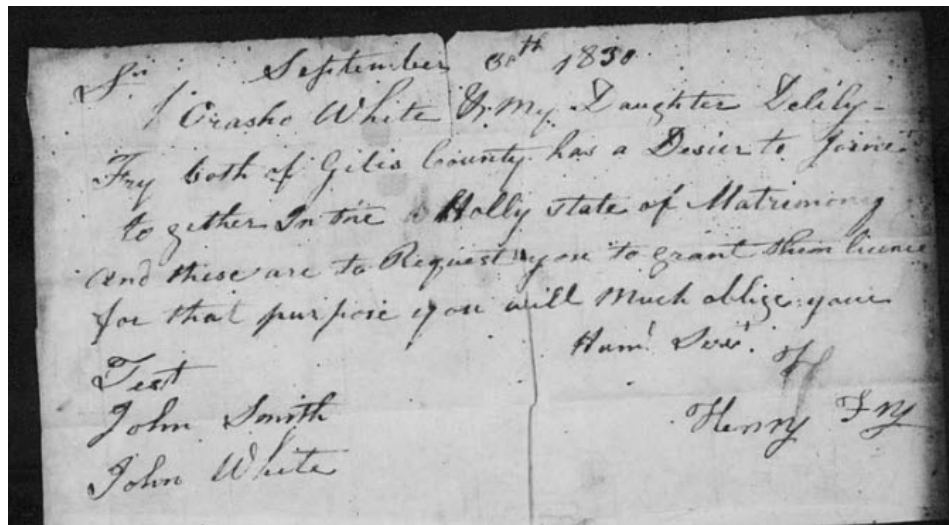 Sr September 30th 1830
Crasho White & My Daughter Delily
Fry both of Gilis County has a Desier to Joine
to gether In the Holly state of Matrimony
and these are to Request you to grant them licence
for that purpose you will Much oblige your
Huml Servt
Test H
John Smith Henry Fry
John White